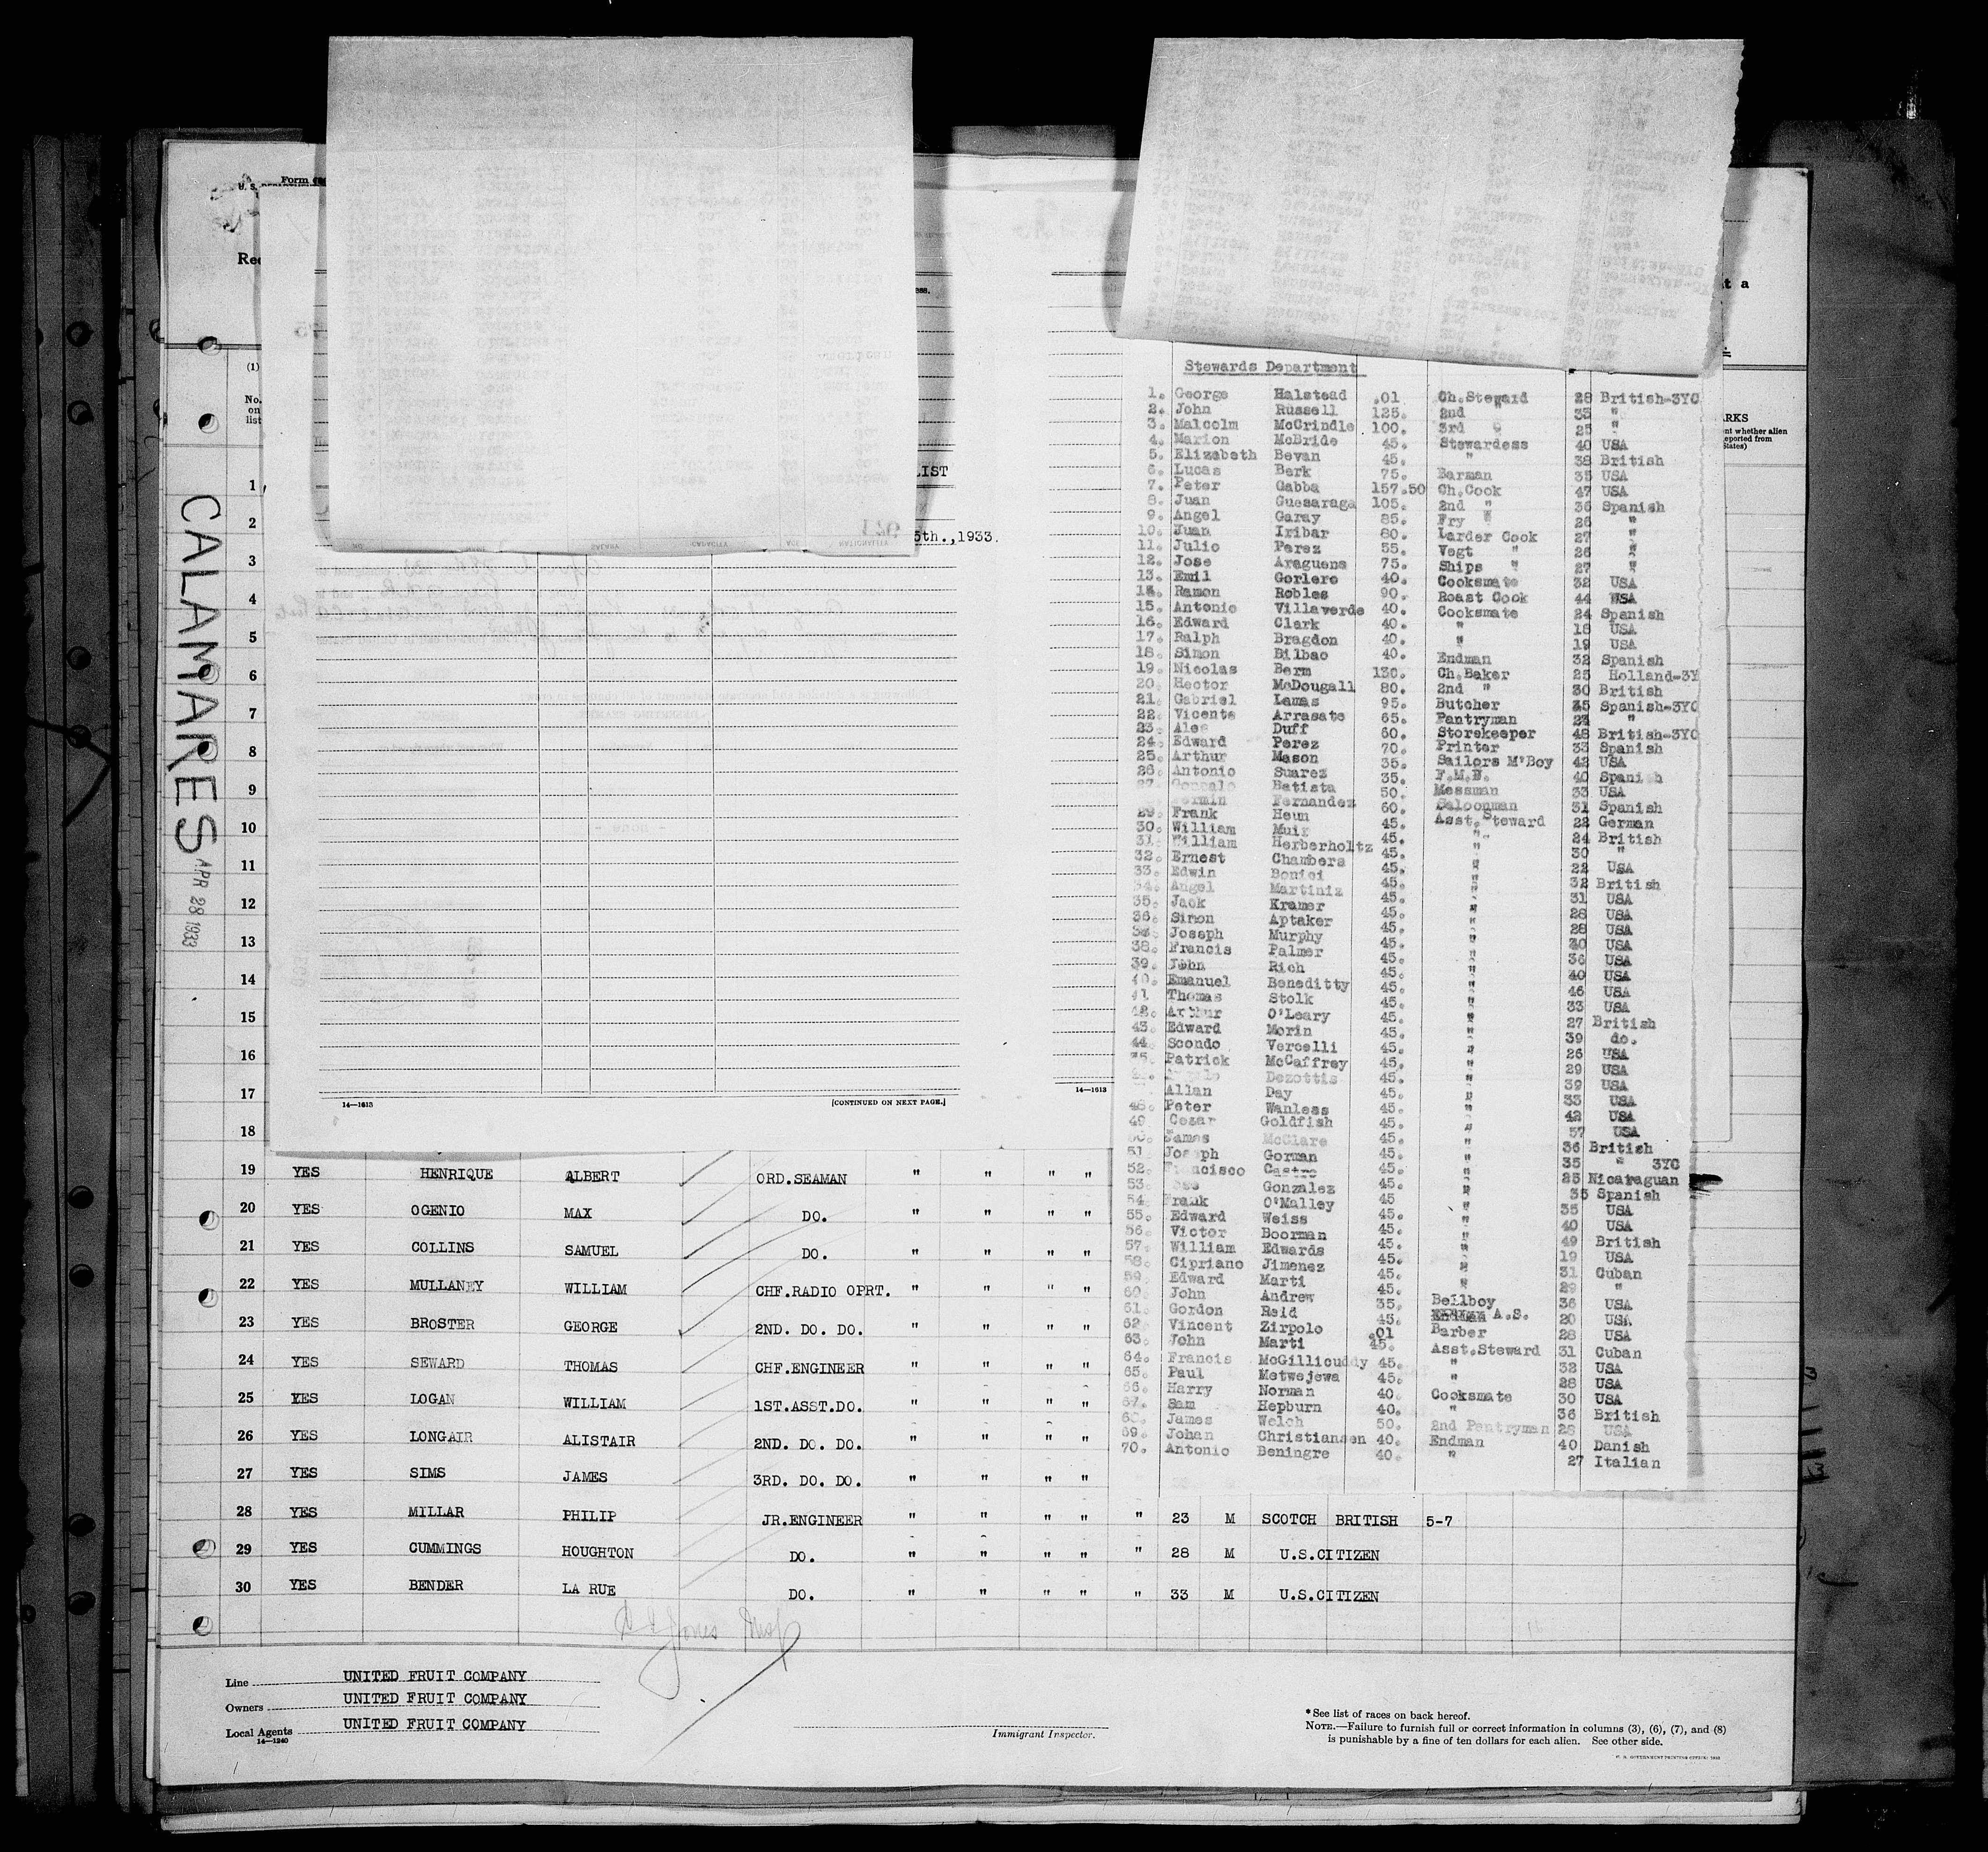 Form
U. S. DEPARTMENT
t a
ess.
(1)
No. on list
ARKS
nt whether alien
eported from
States)
LIST
5th.,1933.
NO. NAME SALARY CAPACITY AGE NATIONALITY
CALAMARES APR 28 1933
1
2
3
4
5
6
7
8
9
10
11
12
13
14
15
16
17
18
14—1613 [CONTINUED ON NEXT PAGE.] 14—1613
Stewards Department
1. George Halstead .01 Ch.Steward 28 British-3YC
2. John Russell 125. 2nd " 33 "
3. Malcolm McCrindle 100. 3rd " 25 "
4. Marion McBride 45. Stewardess 40 USA
5. Elizabeth Bevan 45. " 38 British
6. Lucas Berk 75. Barman 35 USA
7. Peter Gabba 157.50 Ch.Cook 47 USA
8. Juan Guesaraga 105. 2nd " 36 Spanish
9. Angel Garay 85. Fry " 26 "
10. Juan Iribar 80. Larder Cook 27 "
11. Julio Perez 55. Vegt " 26 "
12. Jose Araguena 75. Ships " 27 "
13. Emil Gorlero 40. Cooksmate 32 USA
14. Ramon Robles 90. Roast Cook 44 USA
15. Antonio Villaverde 40. Cooksmate 24 Spanish
16. Edward Clark 40. " 18 USA
17. Ralph Bragdon 40. " 19 USA
18. Simon Bilbao 40. Endman 32 Spanish
19. Nicolas Berm 130. Ch.Baker 25 Holland-3Y
20. Hector McDougall 80. 2nd " 30 British
21. Gabriel Lamas 95. Butcher 35 Spanish-3YC
22. Vicente Arrasate 65. Pantryman 24 "
23. Alec Duff 60. Storekeeper 48 British-3YC
24. Edward Perez 70. Printer 33 Spanish
25. Arthur Mason 35. Sailors M'Boy 42 USA
26. Antonio Suarez 35. F.M.B. 40 Spanish
27. Goncalo Batista 50. Messman 33 USA
ermin Fernandez 60. Saloonman 31 Spanish
29. Frank Heun 45. Asst.Steward 22 German
30. William Muir 45. " 24 British
31. William Herberholtz 45. " 30 "
32. Ernest Chambers 45. " 22 USA
33. Edwin Bonici 45. " 32 British
34. Angel Martiniz 45. " 31 USA
35. Jack Kramer 45. " 28 USA
36. Simon Aptaker 45. " 28 USA
Joseph Murphy 45. " 40 USA
38. Francis Palmer 45. " 36 USA
39. John Rich 45. " 40 USA
40. Emanuel Beneditty 45. " 46 USA
41 Thomas Stolk 45. " 33 USA
42. Arthur O'Leary 45. " 27 British
43. Edward Morin 45. " 39 do.
44. Scondo Vercelli 45. " 26 USA
Patrick McCaffrey 45. " 29 USA
Dezottis 45. " 39 USA
Allan Day 45. " 33 USA
48. Peter Wanless 45. " 42 USA
49. Cezar Goldfish 45. " 37 USA
James McClare 45. " 36 British
51. Joseph Gorman 45. " 35 " 3YC
52. Francisco Castro 45. " 25 Nicaraguan
53. Gonzalez 45. " 35 Spanish
54. Frank O'Malley 45 " 35 USA
55. Edward Weiss 45. " 40 USA
56. Victor Boorman 45. " 49 British
57. William Edwards 45. " 19 USA
58. Cipriano Jimenez 45. " 31 Cuban
59. Edward Marti 45. " 29 "
60. John Andrew 35. Bellboy 36 USA
61. Gordon Reid 45. A.S. 20 USA
62. Vincent Zirpolo .01 Barber 28 USA
63. John Marti 45. Asst.Steward 31 Cuban
64. Francis McGillicuddy 45. " 32 USA
65. Paul Metwejewa 45. " 28 USA
66. Harry Norman 40. Cooksmate 30 USA
67. Sam Hepburn 40. " 36 British
68. James Welch 50. 2nd Pantryman 28 USA
69. Johan Christiansen 40. Endman 40 Danish
70. Antonio Beningre 40. " 27 Italian
19 YES HENRIQUE ALBERT ORD.SEAMAN " " " "
20 YES OGENIO MAX DO. " " " "
21 YES COLLINS SAMUEL DO. " " " "
22 YES MULLANEY WILLIAM CHF.RADIO OPRT. " " " "
23 YES BROSTER GEORGE 2ND. DO. DO. " " " "
24 YES SEWARD THOMAS CHF.ENGINEER " " " "
25 YES LOGAN WILLIAM 1ST.ASST.DO. " " " "
26 YES LONGAIR ALISTAIR 2ND. DO. DO. " " " "
27 YES SIMS JAMES 3RD. DO. DO. " " " "
28 YES MILLAR PHILIP JR.ENGINEER " " " " " 23 M SCOTCH BRITISH 5-7
29 YES CUMMINGS HOUGHTON DO. " " " " " 28 M U.S.CITIZEN
30 YES BENDER LA RUE DO. " " " " " 33 M U.S.CITIZEN
Jones Insp
Line UNITED FRUIT COMPANY
Owners UNITED FRUIT COMPANY
Local Agents UNITED FRUIT COMPANY
14—1240
Immigrant Inspector.
* See list of races on back hereof.
NOTE.—Failure to furnish full or correct information in columns (3), (6), (7), and (8)
is punishable by a fine of ten dollars for each alien. See other side.
U. S. GOVERNMENT PRINTING OFFICE: